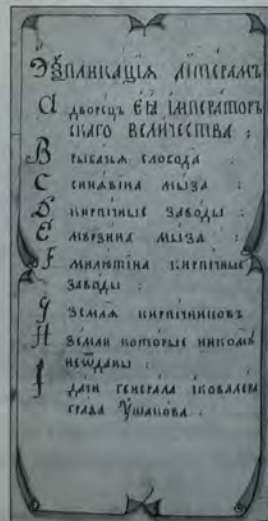 Эѯпликацїя лїтерамъ
A дворецъ Ея Імператор
скаго величества :
B рыбачья слобода
C синявіна мыза :
D кирпїчные заводы :
E мурзина мыза :
F милютіна кирпїчные
заводы :
G земля кирпїчниковъ
H земли которые никому
неѿданы :
I дачи генерала іковалера
графа Ушакова :